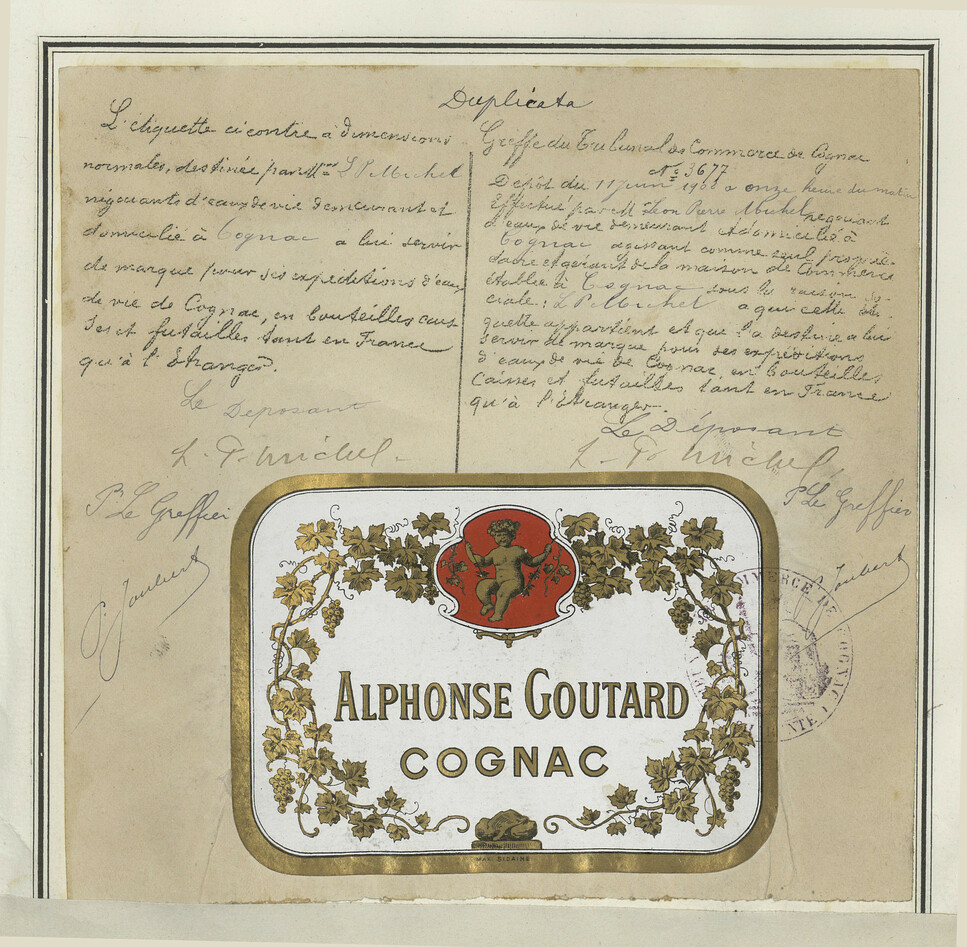 Duplicata
L'étiquette ci contre à dimensions
normales, destinée par M. L P Michel
négociants d'eaux de vie demeurant et
domicilié à Cognac a lui servir
de marque pour ses expéditions d'eaux
de vie de Cognac, en bouteilles cais-
ses et futailles tant en France
qu'à l'étranger.
Le Déposant
L. P. Michel.
Pr Le Greffier
P. Joubert
Greffe du Tribunal de Commerce de Cognac
No 3677
Dépôt du 11 juin 1908 a onze heure du matin
Effectué par M Léon Pierre Michel negociant
d'eaux de vie demeurant et domicilié à
Cognac agissant comme seul proprié-
taire et gérant de la maison de Commerce
établie à Cognac sous la raison so-
ciale: L P Michel a qui cette éti-
quette appartient et que l'a destine a lui
servir de marque pour ses expéditions
d'eaux de vie de Cognac, en bouteilles
Caisses et futailles tant en France
qu'à l'étranger.
Le Déposant
L. P. Michel
Pr Le Greffier
P. Joubert
ALPHONSE GOUTARD
COGNAC